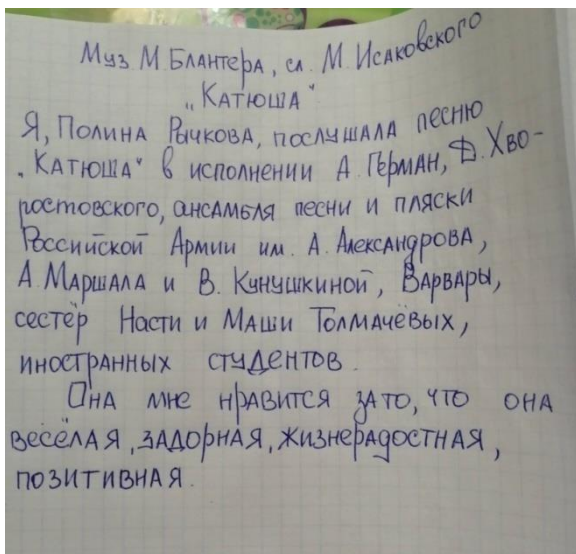 Муз М. Блантера, сл. М. Исаковского
"Катюша"
Я, Полина Рычкова, послушала песню
"Катюша" в исполнении А. Герман, Д. Хво-
ростовского, ансамбля песни и пляски
Российской Армии им. А. Александрова,
А. Маршала и В. Кунушкиной, Варвары,
сестёр Насти и Маши Толмачёвых,
иностранных студентов.
Она мне нравится зато, что она
весёлая, задорная, жизнерадостная,
позитивная.